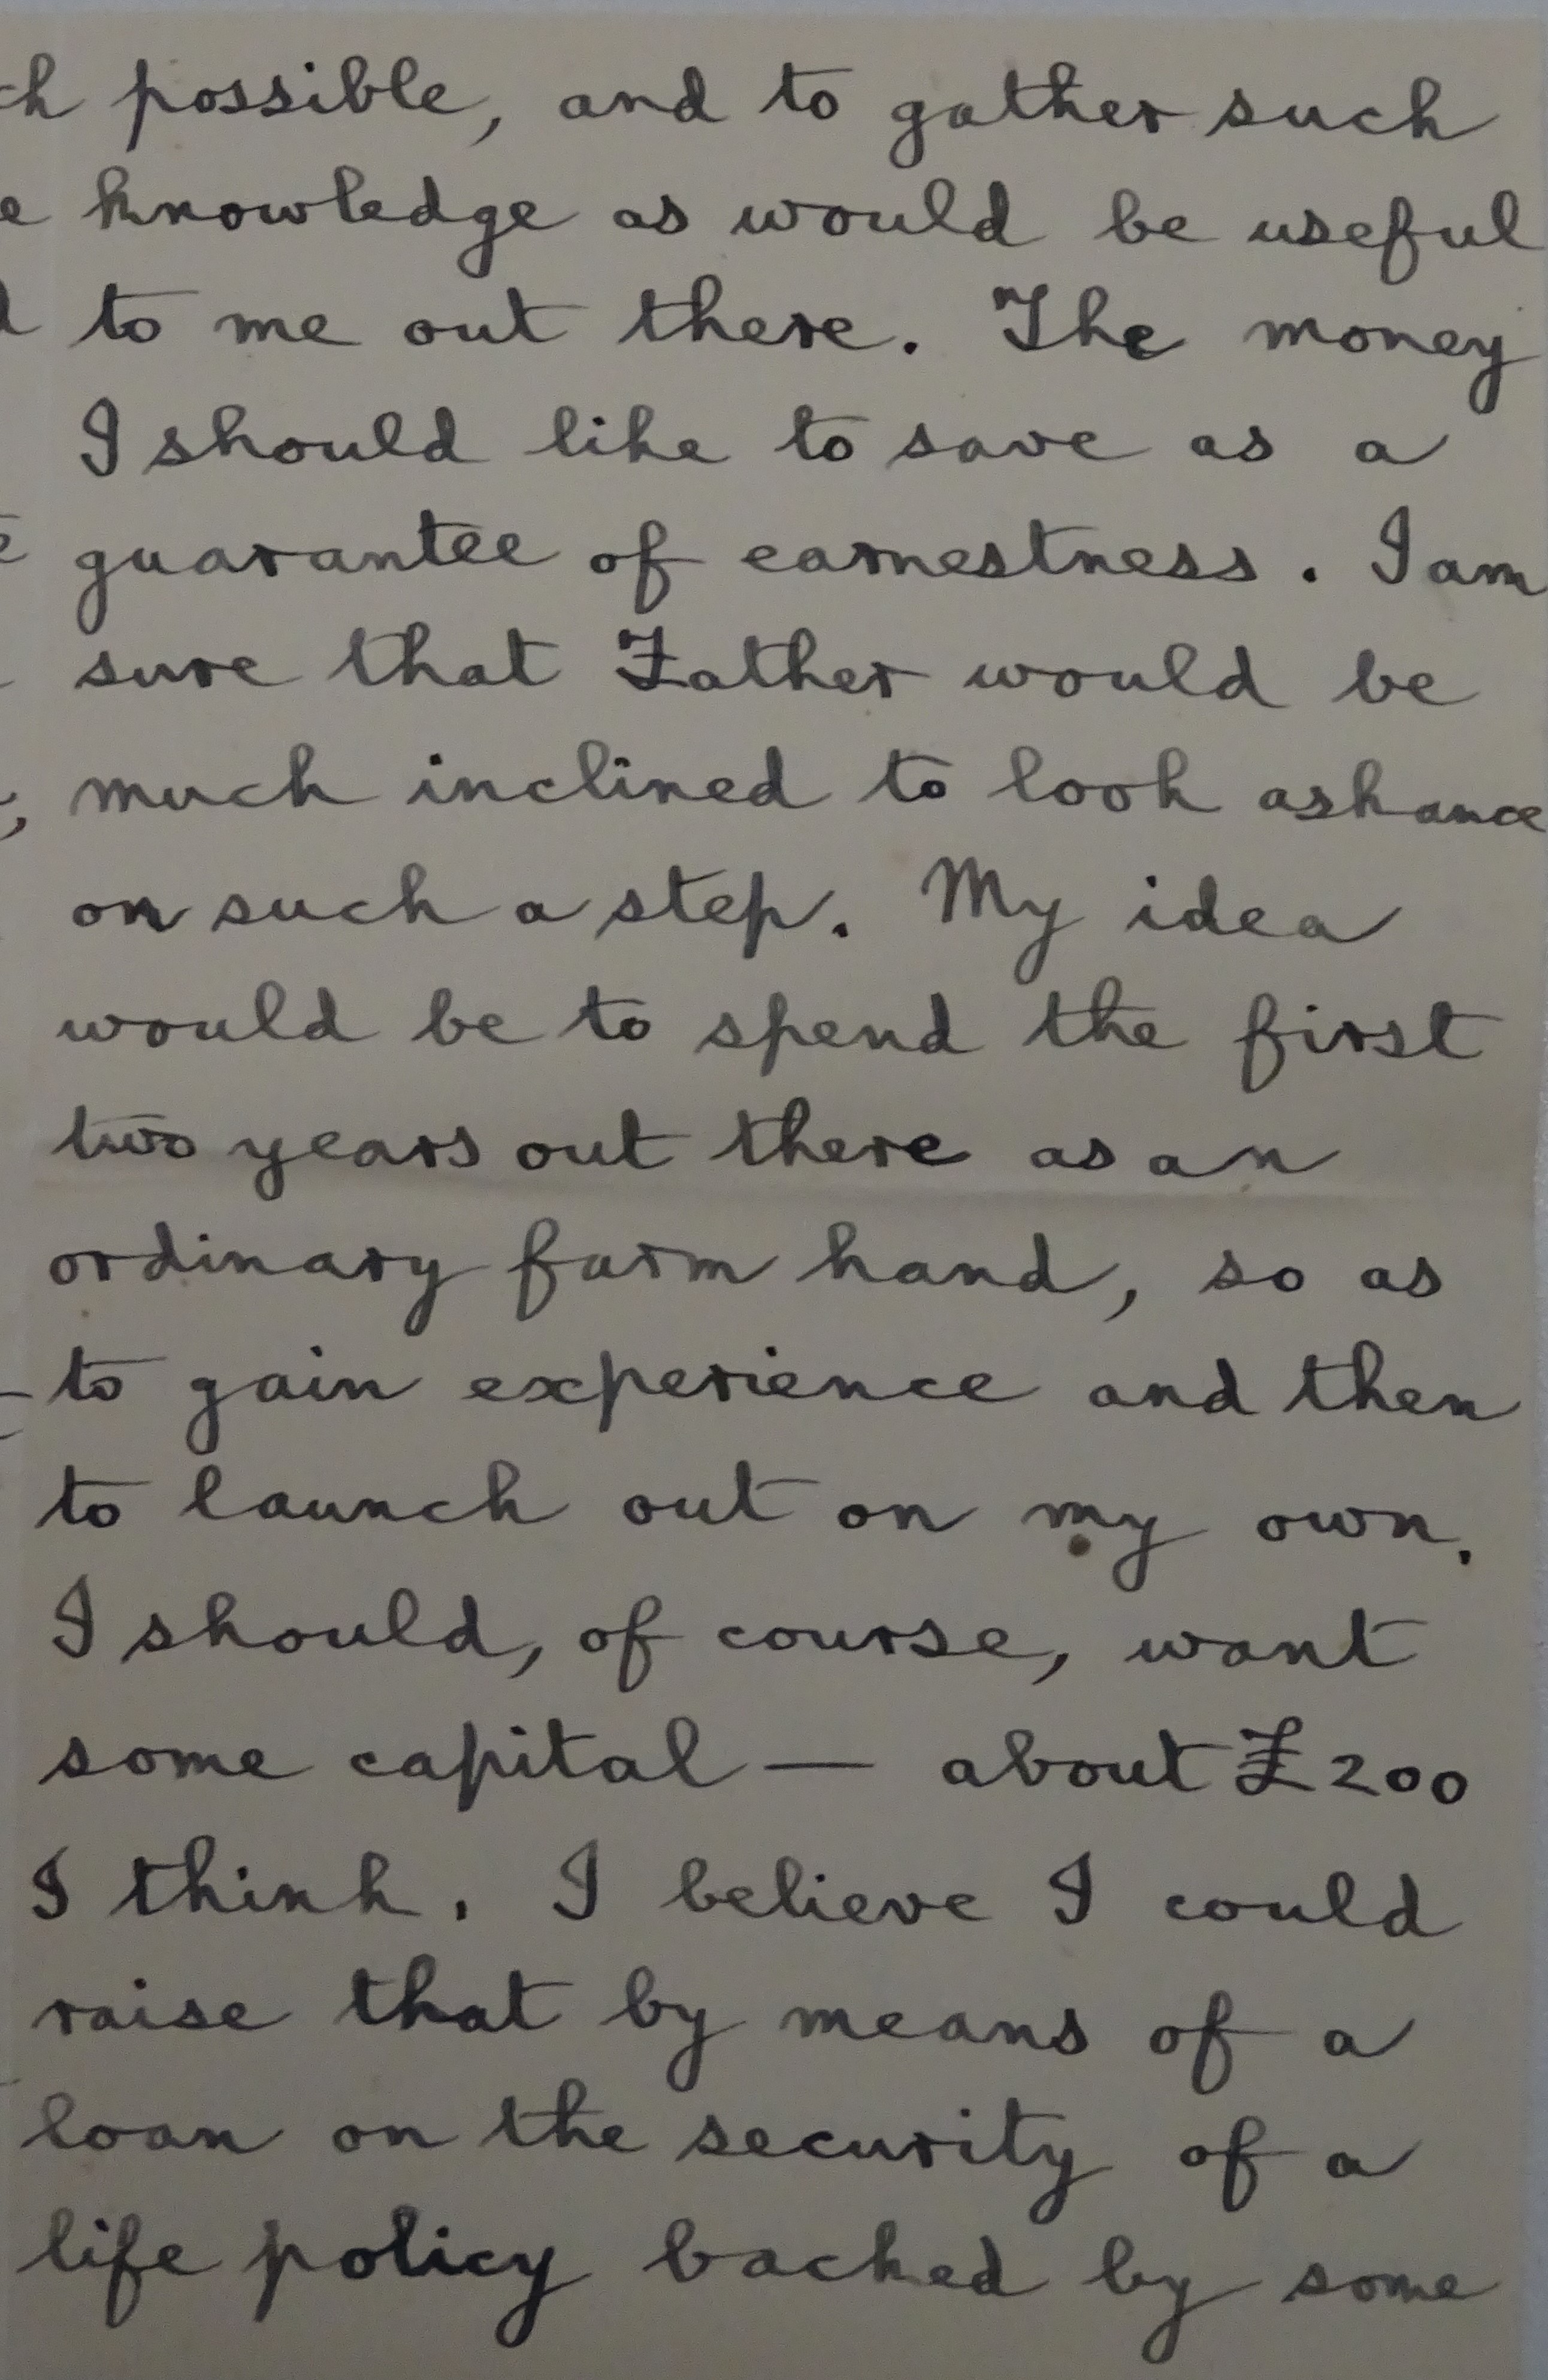 possible, and to gather such
knowledge as would be useful
to me out there. The money
I should like to save as a
guarantee of earnestness. I am
sure that Father would be
much inclined to look askance
on such a step. My idea
would be to spend the first
two years out there as an
ordinary farm hand, so as
to gain experience and then
to launch out on my own.
I should, of course, want
some capital — about £200
I think. I believe I could
raise that by means of a
loan on the security of a
life policy backed by some